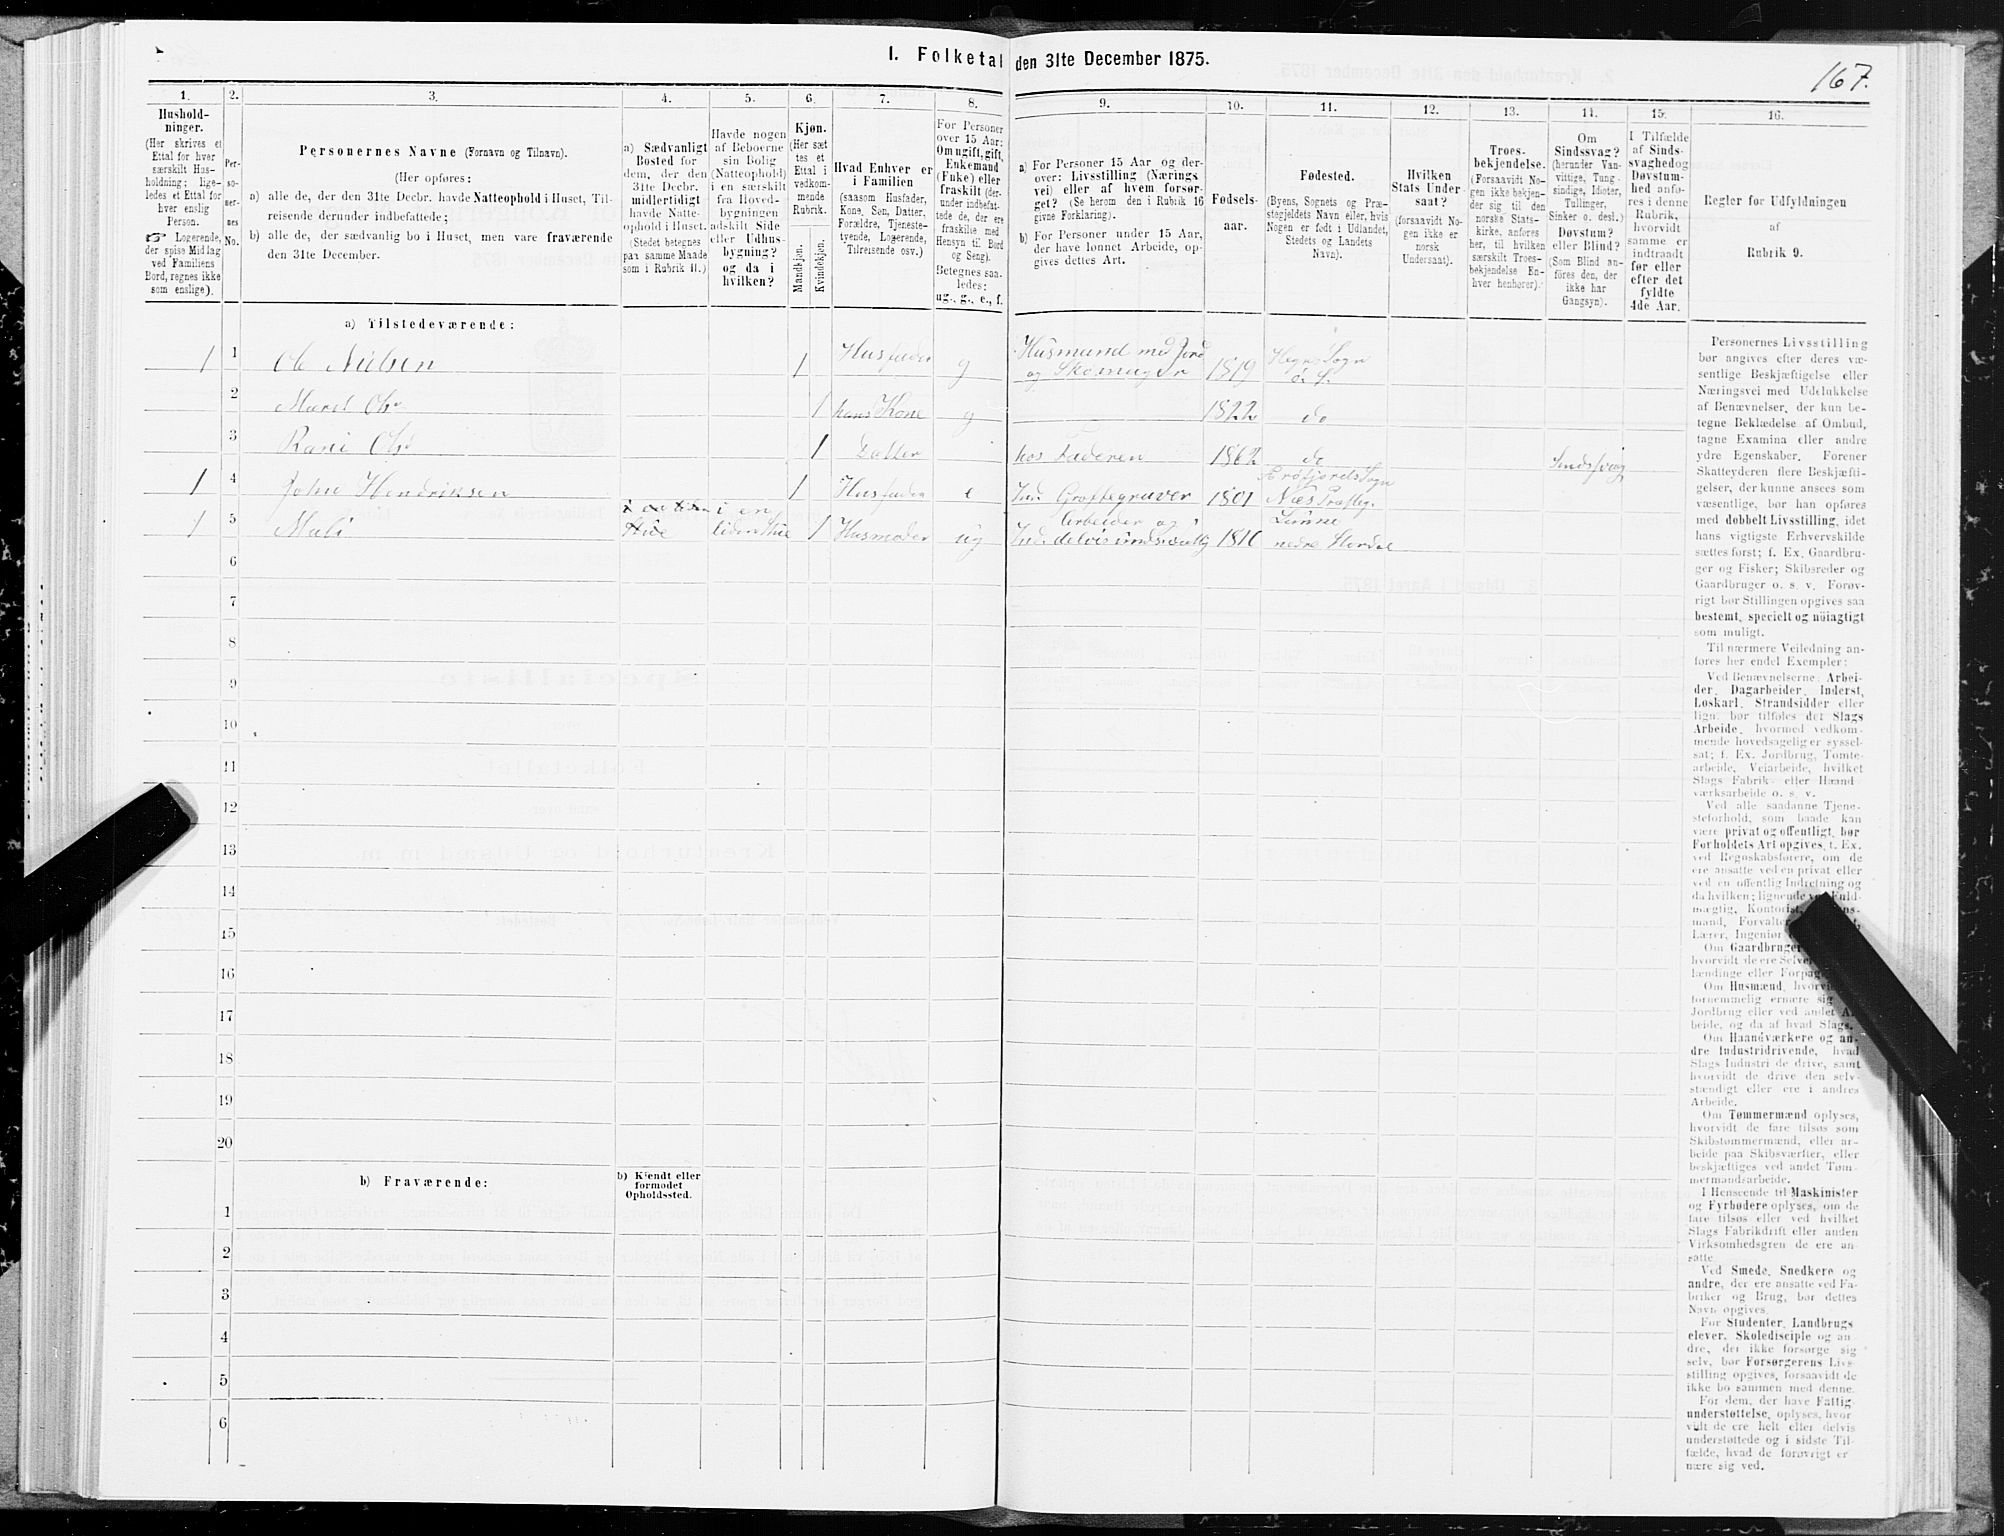 I. Folketal den 31te December 1875.
167.
1. 2. 3. 4. 5. 6. 7. 8. 9. 10. 11. 12. 13. 14. 15. 16.
Hushold-
ninger.
(Her skrives et
Ettal for hver
særskilt Hus-
holdning; lige-
ledes et Ettal for
hver enslig
Person.
☞ Logerende,
der spise Middag
ved Familiens
Bord, regnes ikke
som enslige).
Per-
so-
ner-
nes
No.
Personernes Navne (Fornavn og Tilnavn).
(Her opføres:
a) alle de, der den 31te Decbr. havde Natteophold i Huset, Til-
reisende derunder indbefattede;
b) alle de, der sædvanlig bo i Huset, men vare fraværende
den 31te December.
a) Sædvanligt
Bosted for
dem, der den
31te Decbr.
midlertidigt
havde Natte-
ophold i Huset.
(Stedet betegnes
paa samme Maade
som i Rubrik 11.)
Havde nogen
af Beboerne
sin Bolig
(Natteophold)
i en særskilt
fra Hoved-
bygningen
adskilt Side
eller Udhus-
bygning?
og da i
hvilken?
Kjøn.
(Her sæt
tes et
Ettal i
vedkom-
mende
Rubrik.
Mandkjøn.
Kvindekjøn.
Hvad Enhver er
i Familien
(saasom Husfader,
Kone, Søn, Datter,
Forældre, Tjeneste-
tyende, Logerende,
Tilreisende osv.)
For Personer
over 15 Aar:
Om ugift, gift,
Enkemand
(Enke) eller
fraskilt (der-
under indbefat-
tede de, der ere
fraskilte med
Hensyn til Bord
og Seng).
Betegnes saa-
ledes:
ug., g., e., f.
a) For Personer 15 Aar og der-
over: Livsstilling (Nærings
vei) eller af hvem forsør-
get? (Se herom den i Rubrik 16
givne Forklaring).
b) For Personer under 15 Aar,
der have lønnet Arbeide, op-
gives dettes Art.
Fødsels-
aar.
Fødested.
(Byens, Sognets og Præ-
stegjeldets Navn eller, hvis
Nogen er født i Udlandet,
Stedets og Landets
Navn).
Hvilken
Stats Under-
saat?
(forsaavidt No-
gen ikke er
norsk
Undersaat).
Troes-
bekjendelse.
(Forsaavidt No-
gen ikke bekjen-
der sig til den
norske Stats-
kirke, anføres
her, til hvilken
særskilt Troes-
bekjendelse En-
hver henhører).
Om
Sindssvag?
(herunder Van-
vittige, Tung-
sindige, Idioter,
Tullinger,
Sinker o. desl.)
Døvstum?
eller Blind?
(Som Blind an-
føres den, der
ikke har
Gangsyn).
I Tilfælde
af Sinds-
svaghed og
Døvstum-
hed anfø-
res i denne
Rubrik,
hvorvidt
samme er
indtraadt
før eller
efter det
fyldte
4de Aar.
Regler for Udfyldningen
af
Rubrik 9.
a) Tilstedeværende:
1 1 Ole Nielsen 1 Husfader g Husmand med Jord
og Skomager 1819 Hegre Sogn
2 Maret Olsd. 1 hans Kone g 1822 do
3 Olsd. 1 Datter hos Faderen 1862 do Sindssvag
1 4 John Hendriksen 1 Husfader e Ind. Grøftegraver 1801 Næs Præsteg.
1 5 Mali i en
liden Stue 1 Husmoder ug Ind. Arbeider og
delvis 1810 nedre
6
7
8
9
10
11
12
13
14
15
16
17
18
19
20
b) Fraværende:
b) Kjendt eller
formodet
Opholdssted.
1
2
3
4
5
6
Personernes Livsstilling
bør angives efter deres væ-
sentlige Beskjæftigelse eller
Næringsvei med Udelukkelse
af Benævnelser, der kun be-
tegne Beklædelse af Ombud,
tagne Examina eller andre
ydre Egenskaber. Forener
Skatteyderen flere Beskjæfti-
gelser, der kunne ansees som
væsentlige, bør han opføres
med dobbelt Livsstilling, idet
hans vigtigste Erhvervskilde
sættes først; f. Ex. Gaardbru-
ger og Fisker; Skibsreder og
Gaardbruger o. s. v. Forøv-
rigt bør Stillingen opgives saa
bestemt, specielt og nøiagtigt
som muligt.
Til nærmere Veiledning an-
føres her endel Exempler:
Ved Benævnelserne: Arbei-
der, Dagarbeider, Inderst,
Løskarl, Strandsidder eller
lign. bør tilføies det Slags
Arbeide, hvormed vedkom-
mende hovedsagelig er syssel-
sat; f. Ex. Jordbrug, Tomte-
arbeide, Veiarbeide, hvilket
Slags Fabrik- eller Haand-
værksarbeide o. s. v.
Ved alle saadanne Tjene-
steforhold, som baade kan
være privat og offentligt, bør
Forholdets Art opgives, f. Ex.
ved Regnskabsførere, om de
ere ansatte ved en privat eller
ved en offentlig Indretning og
da hvilken; lignende ved Fuld-
mægtig, Kontorist,
mand, Forvalter,
Lærer, Ingeniør
Om Gaardbruger
hvorvidt de ere Selv
lændinge eller Forpag
Om Husmænd,
fornemmelig ernære sig
Jordbrug eller ved andet Ar
beide, og da af hvad Slags.
Om Haandværkere og an-
dre Industridrivende, hvad
Slags Industri de drive, samt
hvorvidt de drive den selv-
stændigt eller ere i andres
Arbeide.
Om Tømmermænd oplyses,
hvorvidt de fare tilsøs som
Skibstømmermænd, eller ar-
beide paa Skibsværfter, eller
beskjæftiges ved andet Tøm-
mermandsarbeide.
I Henseende til Maskinister
og Fyrbødere oplyses, om de
fare tilsøs eller ved hvilket
Slags Fabrikdrift eller anden
Virksomhedsgren de ere an-
satte.
Ved Smede, Snedkere og
andre, der ere ansatte ved Fa-
briker og Brug, bør dettes
Navn opgives.
For Studenter, Landbrugs
elever, Skoledisciple og an-
dre, der ikke forsørge sig
selv, bør Forsørgerens Livs-
stilling opgives, forsaavidt de
ikke bo sammen med denne.
For dem, der have Fattig
understøttelse, oplyses, hvor
vidt de ere helt eller delvis
understøttede og i sidste Til-
fælde, hvad de forøvrigt er
nære sig ved.